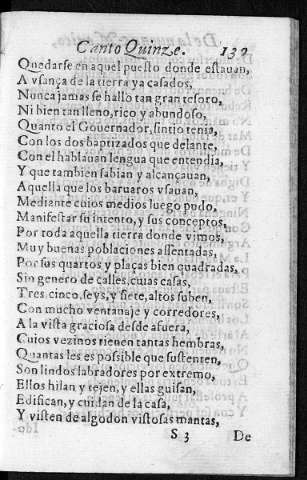 Canto Quinze. 139
Quedarse en aquel puesto donde estauan,
A vsança de la tierra ya casados,
Nunca jamas se hallo tan gran tesoro,
Ni bien tan lleno, rico y abundoso,
Quanto el Gouernador, sintio tenia,
Con los dos baptizados que delante,
Con el hablauan lengua que entendia,
Y que tambien sabian y alcançauan,
Aquella que los baruaros vsauan,
Mediante cuios medios luego pudo,
Manifestar su intento, y sus conceptos,
Por toda aquella tierra donde vimos,
Muy buenas poblaciones assentadas,
Por sus quartos y plaças bien quadradas,
Sin genero de calles, cuias casas,
Tres, cinco, seys, y siete, altos suben,
Con mucho ventanaje y corredores,
A la vista graciosa desde afuera,
Cuios vezinos tienen tantas hembras,
Quantas les es possible que sustenten,
Son lindos labradores por extremo,
Ellos hilan y tejen, y ellas guisan,
Edifican, y cuidan de la casa,
Y visten de algodon vistosas mantas,
S 3 De